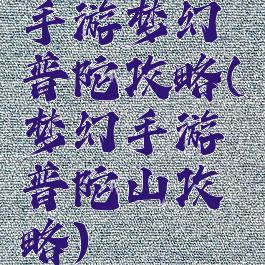 手游梦幻
普陀攻略(
梦幻手游
普陀山攻
略)